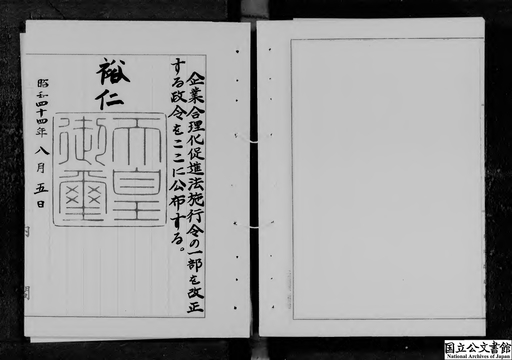 企業合理化促進法施行令の一部を改正
する政令をここに公布する。
裕仁
天皇
御璽
昭和四十四年八月五日
国立公文書館
National Archives of Japan